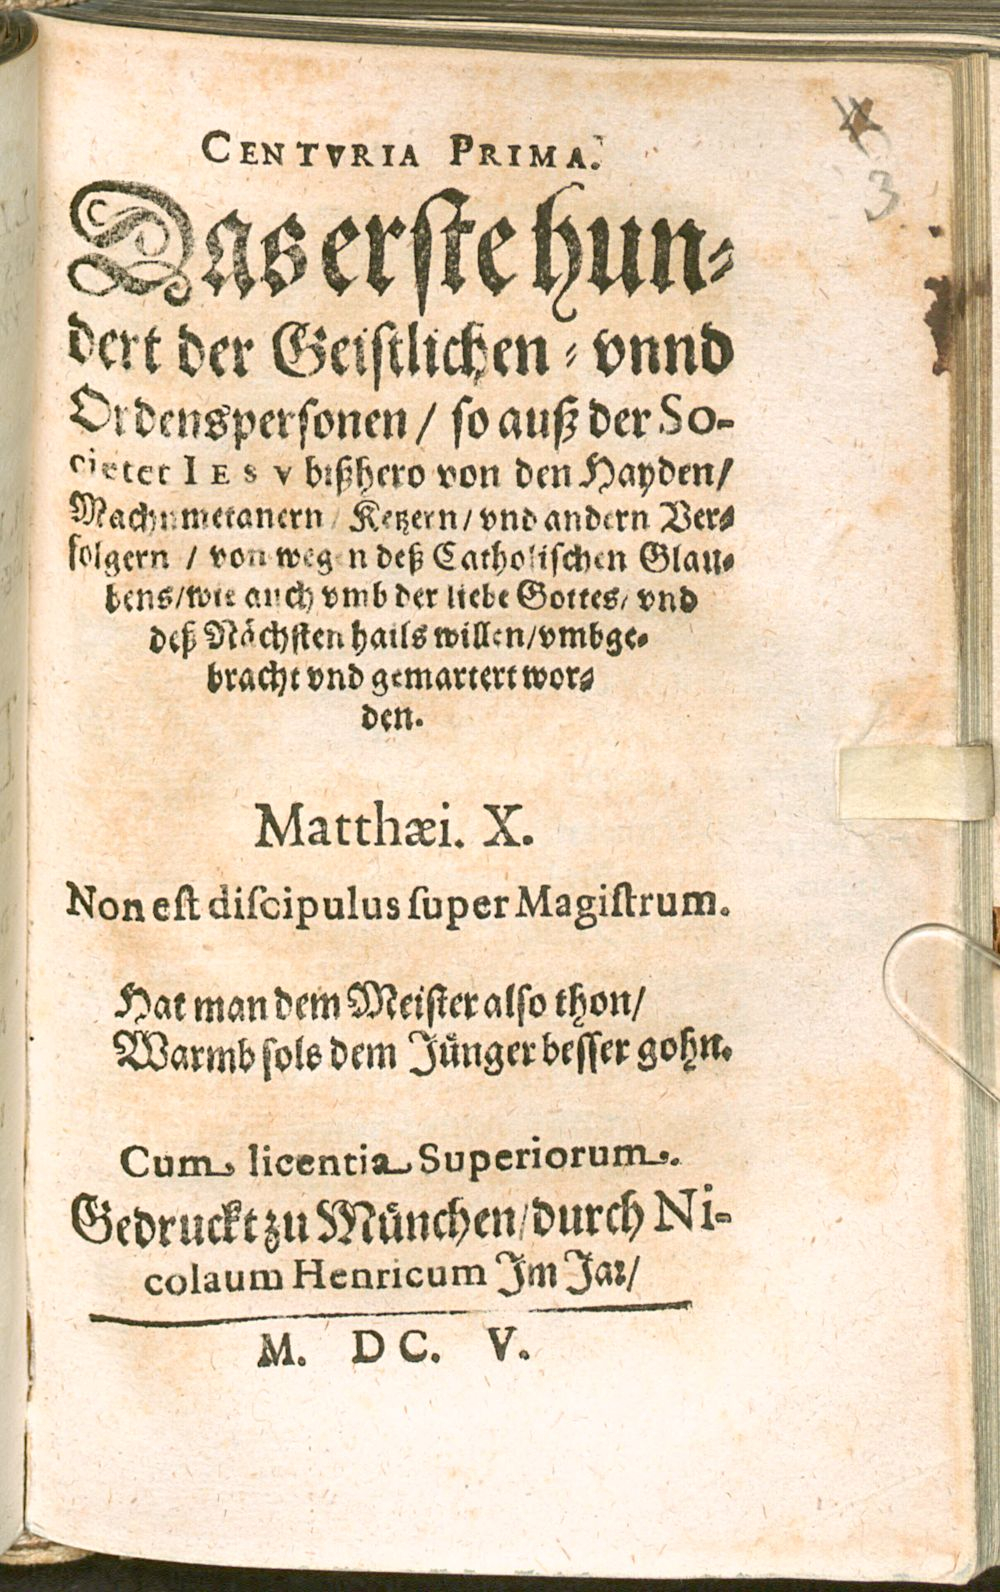 CENTVRIA PRIMA.
Das erste hun-
dert der Geistlichen / vnnd
Ordenspersonen / so auß der So-
cietet IESV bißhero von den Hayden /
Machumetanern / Ketzern / vnd andern Ver-
folgern / von wegen deß Catholischen Glau-
bens / wie auch vmb der liebe Gottes / vnd
deß Nächsten hails willen / vmbge-
bracht vnd gemartert wor-
den.
Matthæi. X.
Non est discipulus super Magistrum.
Hat man dem Meister also thon /
Warmb sols dem Jünger besser gohn.
Cum licentia Superiorum.
Gedruckt zu München / durch Ni-
colaum Henricum Im Jar /
M. DC. V.
3